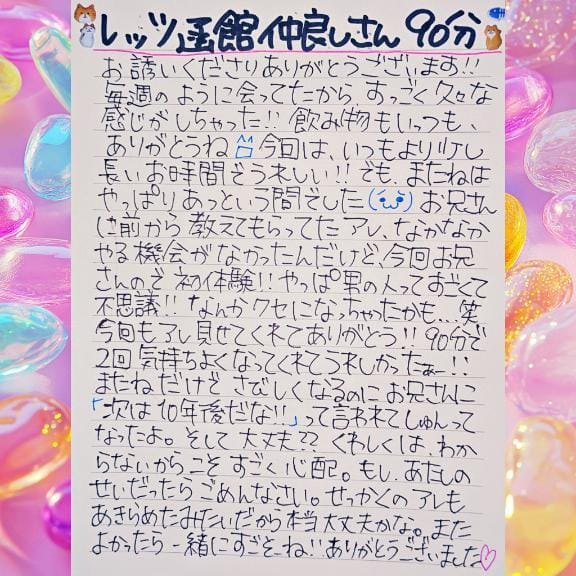 レッツ函館仲良しさん90分
お誘いくださりありがとうございます!!
毎週のように会ってたからすっごく久々な
感じがしちゃった!!飲み物もいっつも、
ありがとうね 今回は、いつもより少し
長いお時間でうれしい!!でも、またねは
やっぱりあっという間でした お兄さん
に前から教えてもらってたアレ、なかなか
やる機会がなかったんだけど、今回お兄
さんので初体験!!やっぱ男の人ってすごくて
不思議!!なんかクセになっちゃったかも…笑
今回もアレ見せてくれてありがとう!!90分で
2回気持ちよくなってくれてうれしかったぁー!!
またねだけどさびしくなるのにお兄さんに
「次は10年後だな!!」って言われてしゅんって
なったよ。そして大丈夫??くわしくは、わか
らないからこそすごく心配。もし、あたしの
せいだったらごめんなさい。せっかくのアレも
あきらめたみたいだから本当大丈夫かな。また
よかったら一緒にすごそーね!!ありがとうございました♡